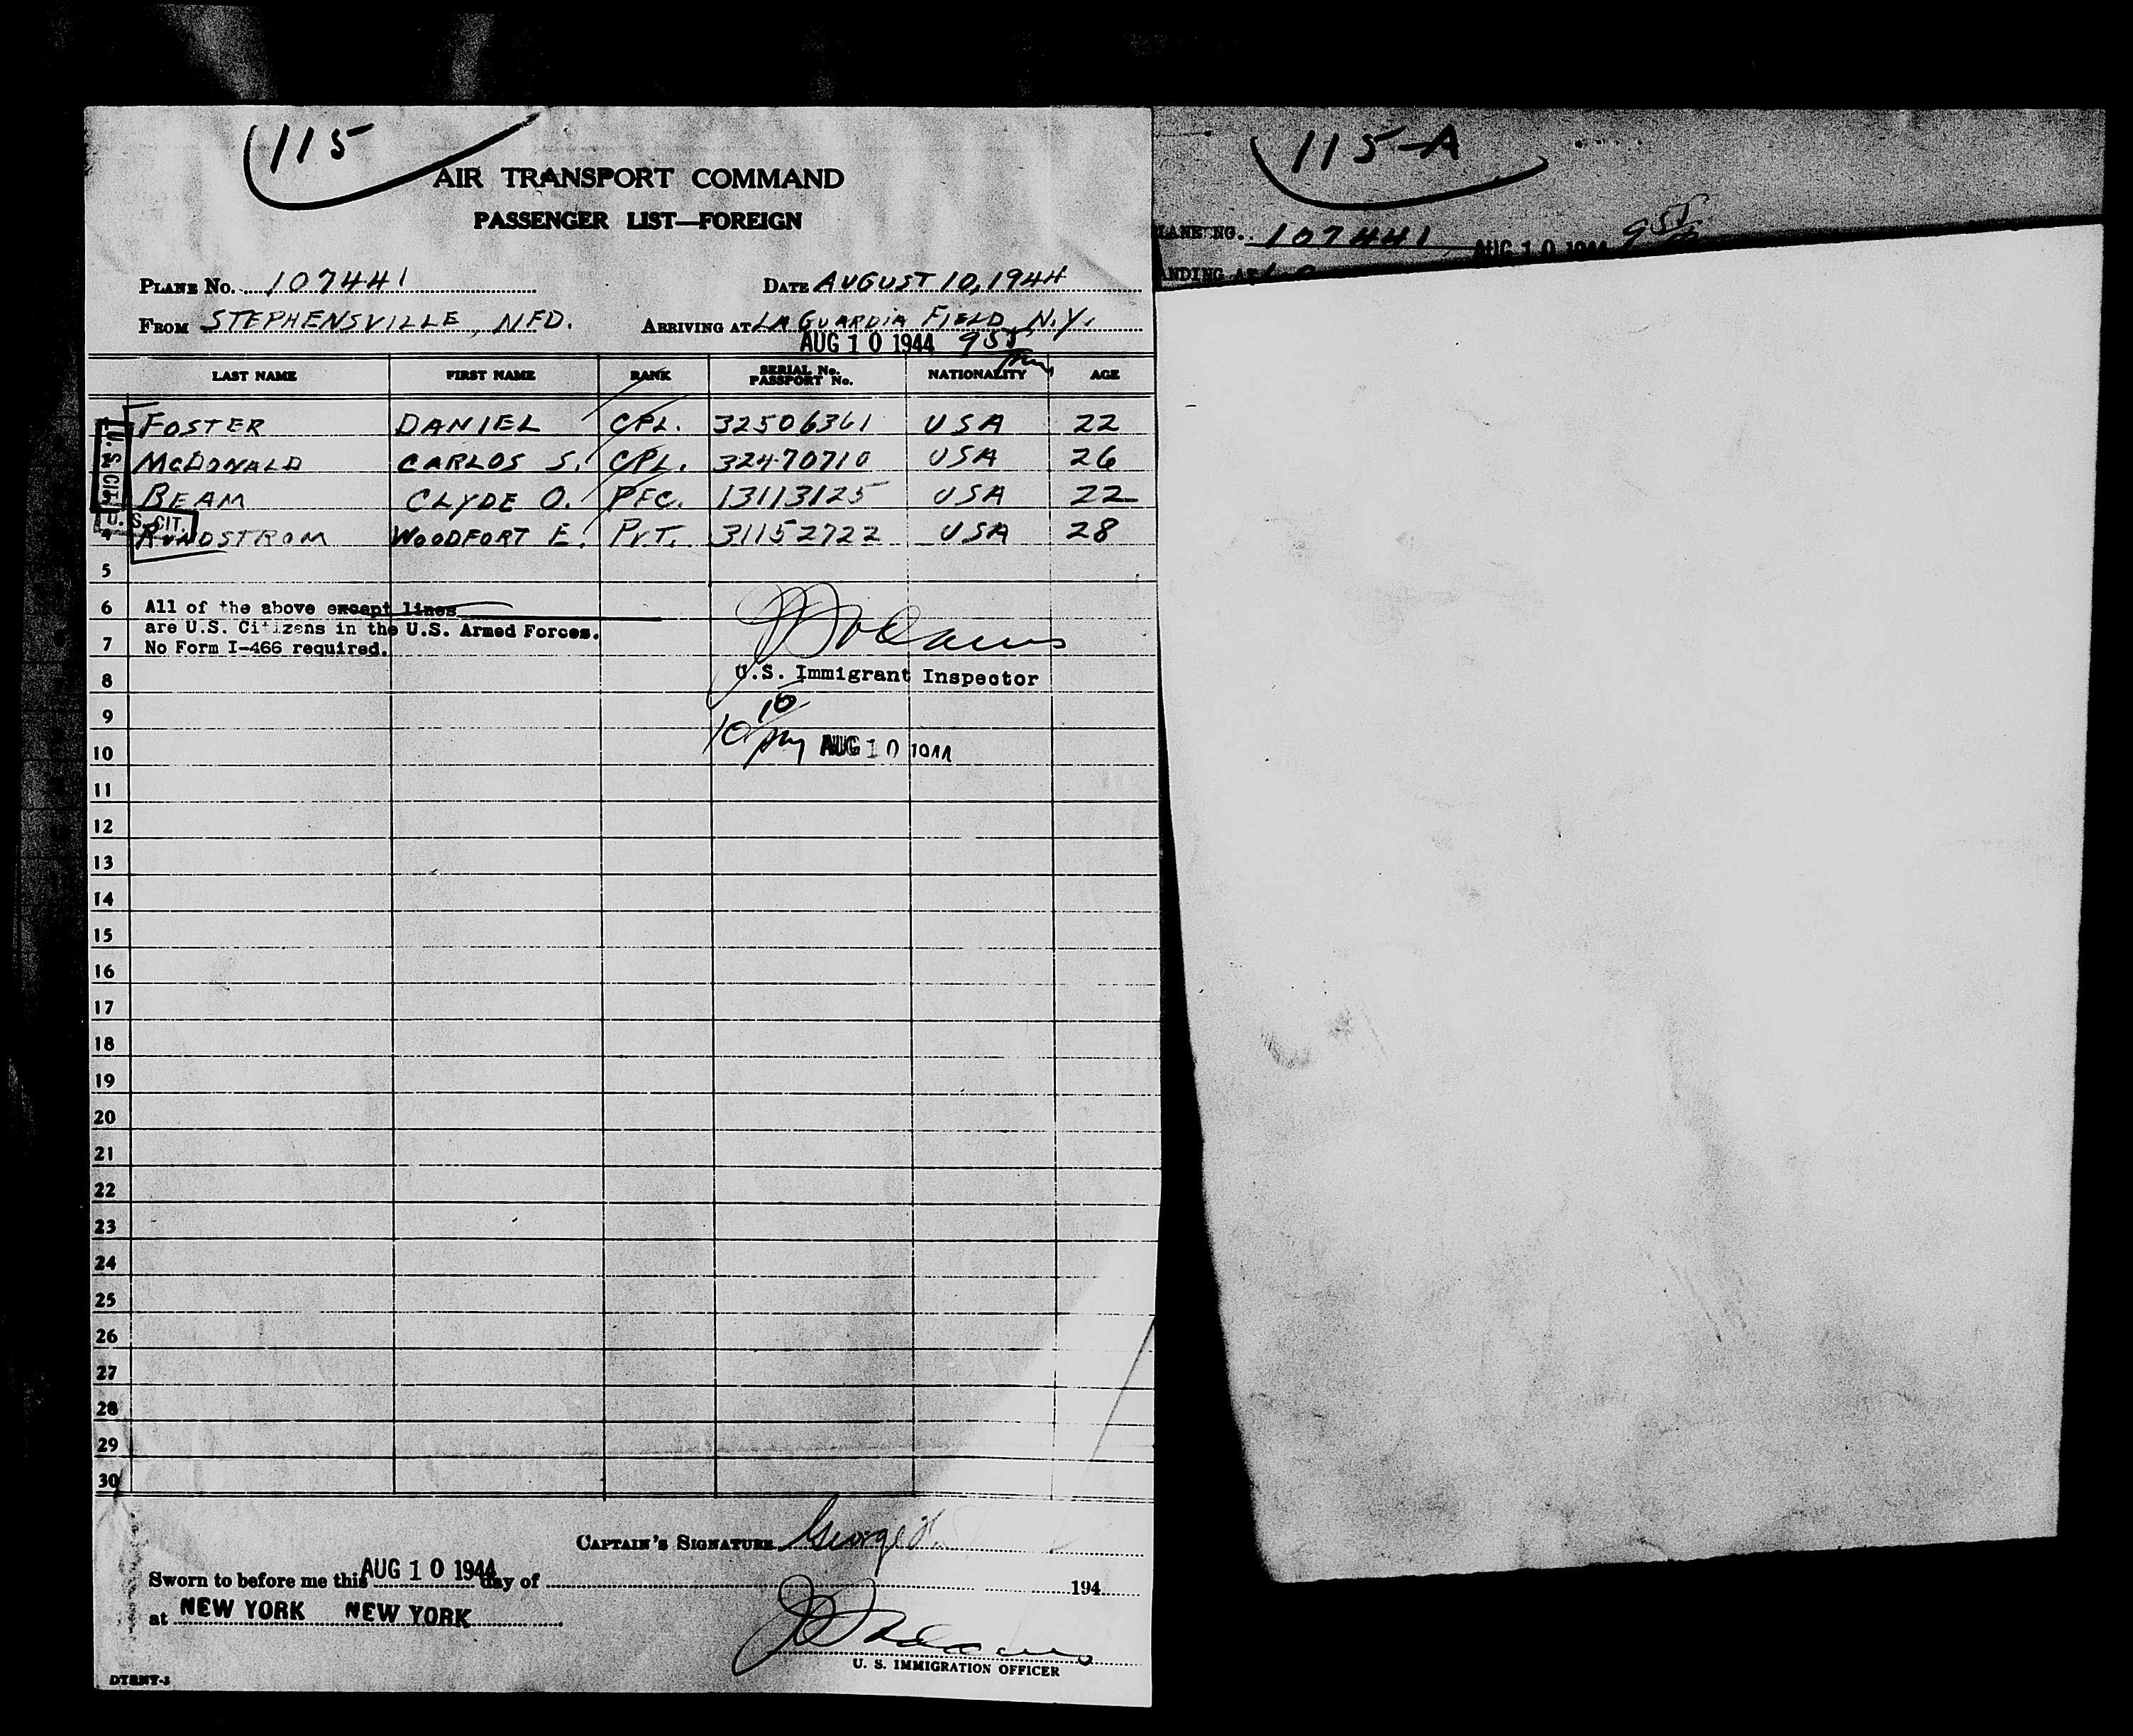 115
AIR TRANSPORT COMMAND
PASSENGER LIST—FOREIGN
PLANE No. 107441 DATE AUGUST 10, 1944
FROM STEPHENSVILLE, NFD. ARRIVING AT LA GUARDIA FIELD, N.Y.
AUG 10 1944 955
LAST NAME FIRST NAME RANK SERIAL No. PASSPORT No. NATIONALITY AGE
FOSTER DANIEL CPL. 32506361 USA 22
McDONALD CARLOS S. CPL. 32470710 USA 26
BEAM CLYDE O. PFC. 13113125 USA 22
WOODFORT E. PVT. 31152722 USA 28
U. S. CIT.
U. S. CIT.
5
6 All of the above except lines
are U.S. Citizens in the U.S. Armed Forces.
7 No Form I-466 required.
8 U.S. Immigrant Inspector
9
10 10 10 PM AUG 10 1944
11
12
13
14
15
16
17
18
19
20
21
22
23
24
25
26
27
28
29
30
CAPTAIN'S SIGNATURE George
Sworn to before me this AUG 10 1944 day of 194
at NEW YORK NEW YORK
U. S. IMMIGRATION OFFICER
115-A
107441 AUG 10 1944 955